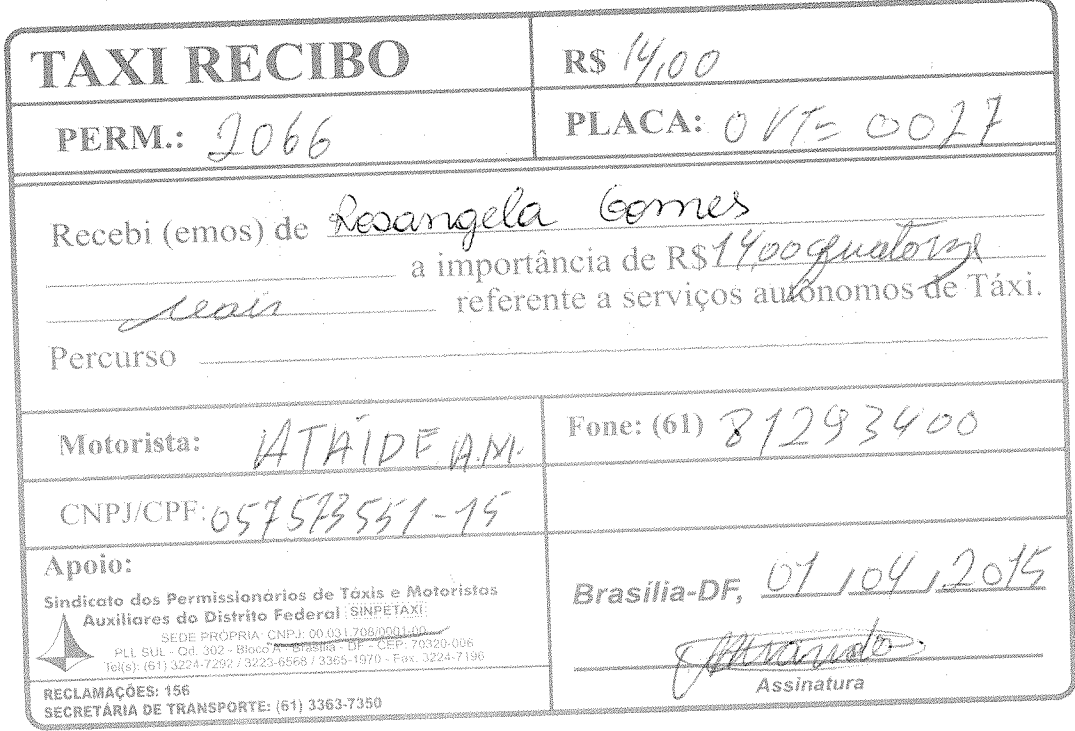 TAXI RECIBO
R$ 14,00
PERM.: 2066
PLACA: OVT= 0027
Recebi (emos) de Rosangela Gomes
a importância de R$ 14,00 quatorze
reais referente a serviços autônomos de Táxi.
Percurso
Motorista: ATAIDE A.M.
Fone: (61) 81293400
CNPJ/CPF: 057573551-15
Apoio:
Sindicato dos Permissionários de Táxis e Motoristas
Auxiliares do Distrito Federal SINPETAXI
SEDE PRÓPRIA: CNPJ: 00.031.708/0001-00
PLL SUL - Qd. 302 - Bloco A - Brasília - DF - CEP: 70320-006
Tel(s): (61) 3224-7292 / 3223-6568 / 3365-1970 - Fax. 3224-7196
RECLAMAÇÕES: 156
SECRETÁRIA DE TRANSPORTE: (61) 3363-7350
Brasília-DF, 01 / 04 / 2015
Assinatura